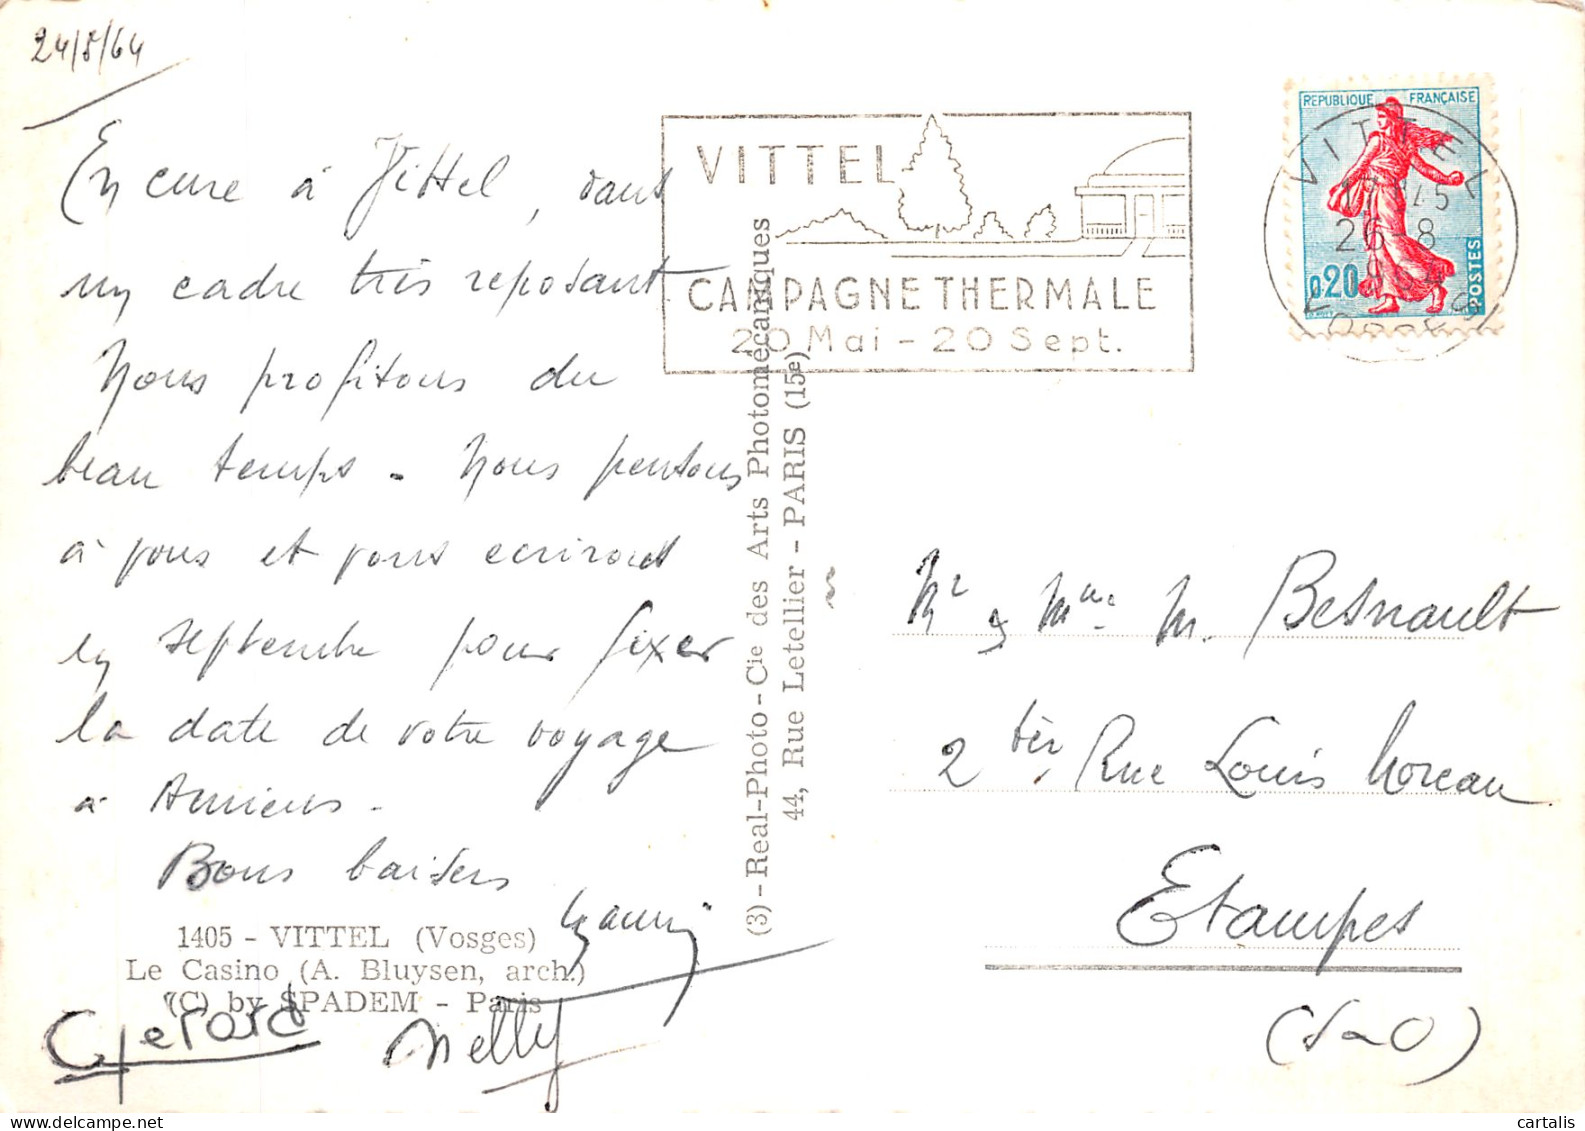 24/8/64
En cure à Vittel, dans
un cadre très reposant.
Nous profitons du
beau temps - Nous pensons
à vous et vous ecrirons
en septembre pour fixer
la date de votre voyage
à Amiens -
Bons baisers
1405 - VITTEL (Vosges)
Le Casino (A. Bluysen, arch.)
(C) by SPADEM - Paris
Gerard
Nelly
(3) - Real-Photo - Cie des Arts Photomécaniques
44, Rue Letellier - PARIS (15e)
VITTEL
CAMPAGNE THERMALE
20 Mai - 20 Sept.
REPUBLIQUE FRANÇAISE
0,20
POSTES
VITTEL
26-8
VOSGES
Mr & Mme M. Besnault
2 ter Rue Louis Moreau
Etampes
(S-O)
cartalis